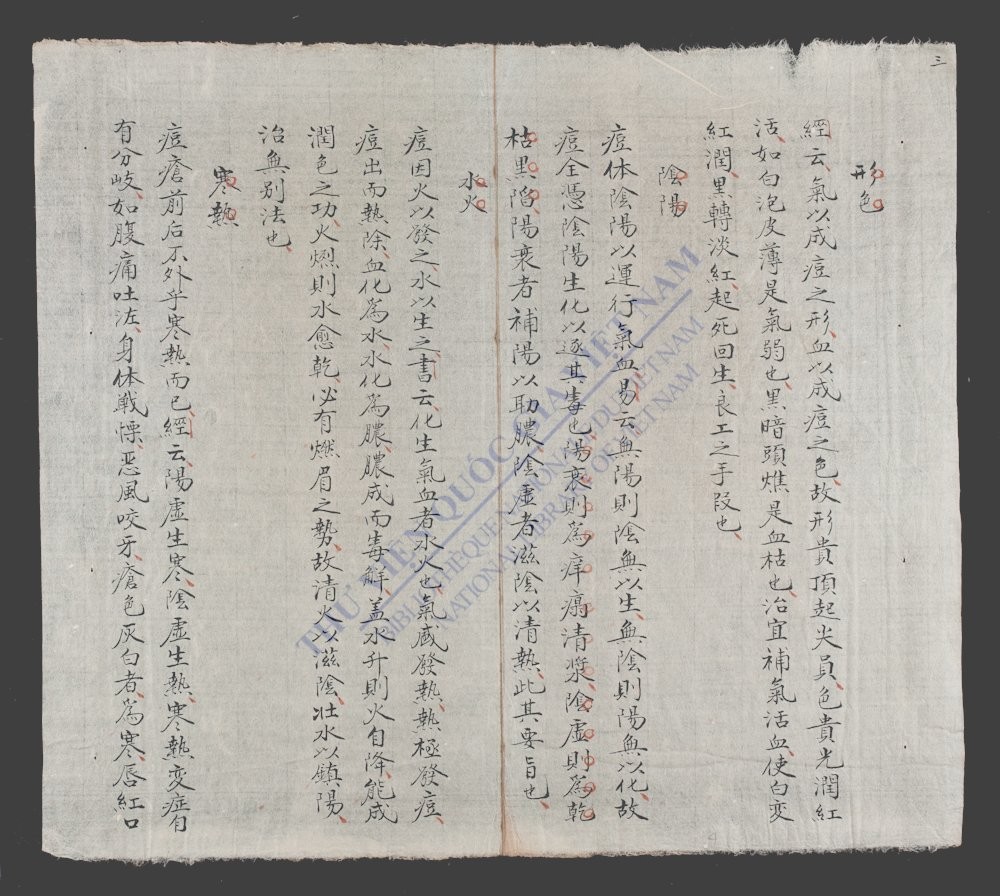 三
形色
經云、氣以成痘之形、血以成痘之色、故形貴頂起尖員色貴光潤紅
活、如白泡皮薄是氣弱也、黑暗頭燋是血枯也、治宜補氣活血、使白变
紅潤、黑轉淡紅、起死回生、良工之手段也、
陰陽
痘体陰陽以運行氣血易云無陽則陰無以生、無陰則陽無以化、故
痘全憑陰陽生化以逐其毒也、陽衰則為痒瘍清漿、陰虛則為乾
枯黑陷、陽衰者補陽以助膿、陰虛者滋陰以清熱、此其要旨也、
水火
痘因火以發之、水以生之、書云、化生氣血者水火也、氣盛發熱、熱極發痘、
痘出而熱除、血化為水、水化為膿、膿成而毒解、盖水升則火自降、能成
潤色之功、火燃則水愈乾、必有燃眉之勢、故清火以滋陰壮水以鎮陽、
治無別法也、
寒熱
痘瘡前后不外乎寒熱而已、經云、陽虛生寒、陰虛生熱、寒熱变症自
有分岐、如腹痛吐泫、身体戦慄、恶風咬牙、瘡色灰白者、為寒、唇紅口
THƯ VIỆN QUỐC GIA VIỆT NAM
BIBLIOTHÈQUE NATIONALE DU VIETNAM
NATIONAL LIBRARY OF VIETNAM